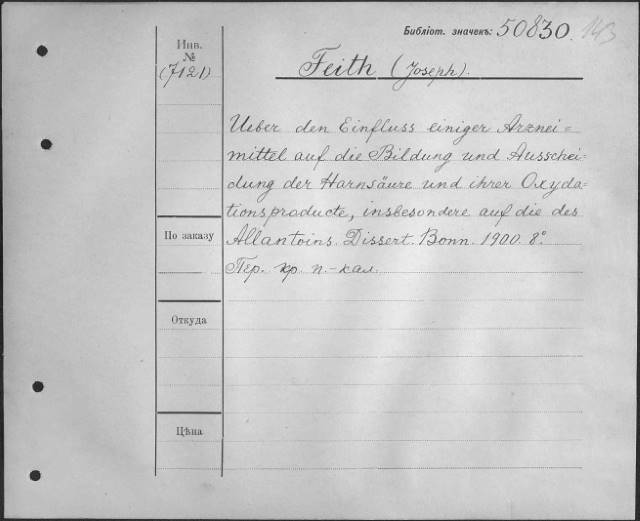 Библіот. значекъ: 50830. 143
Инв.
№
(7121)
Feith (Joseph).
Ueber den Einfluss einiger Arznei=
mittel auf die Bildung und Ausschei=
dung der Harnsäure und ihrer Oxyda=
tionsproducte, insbesondere auf die des
Allantoins. Dissert. Bonn. 1900. 8°.
Пер. кр. п.-кал.
По заказу
Откуда
Цѣна